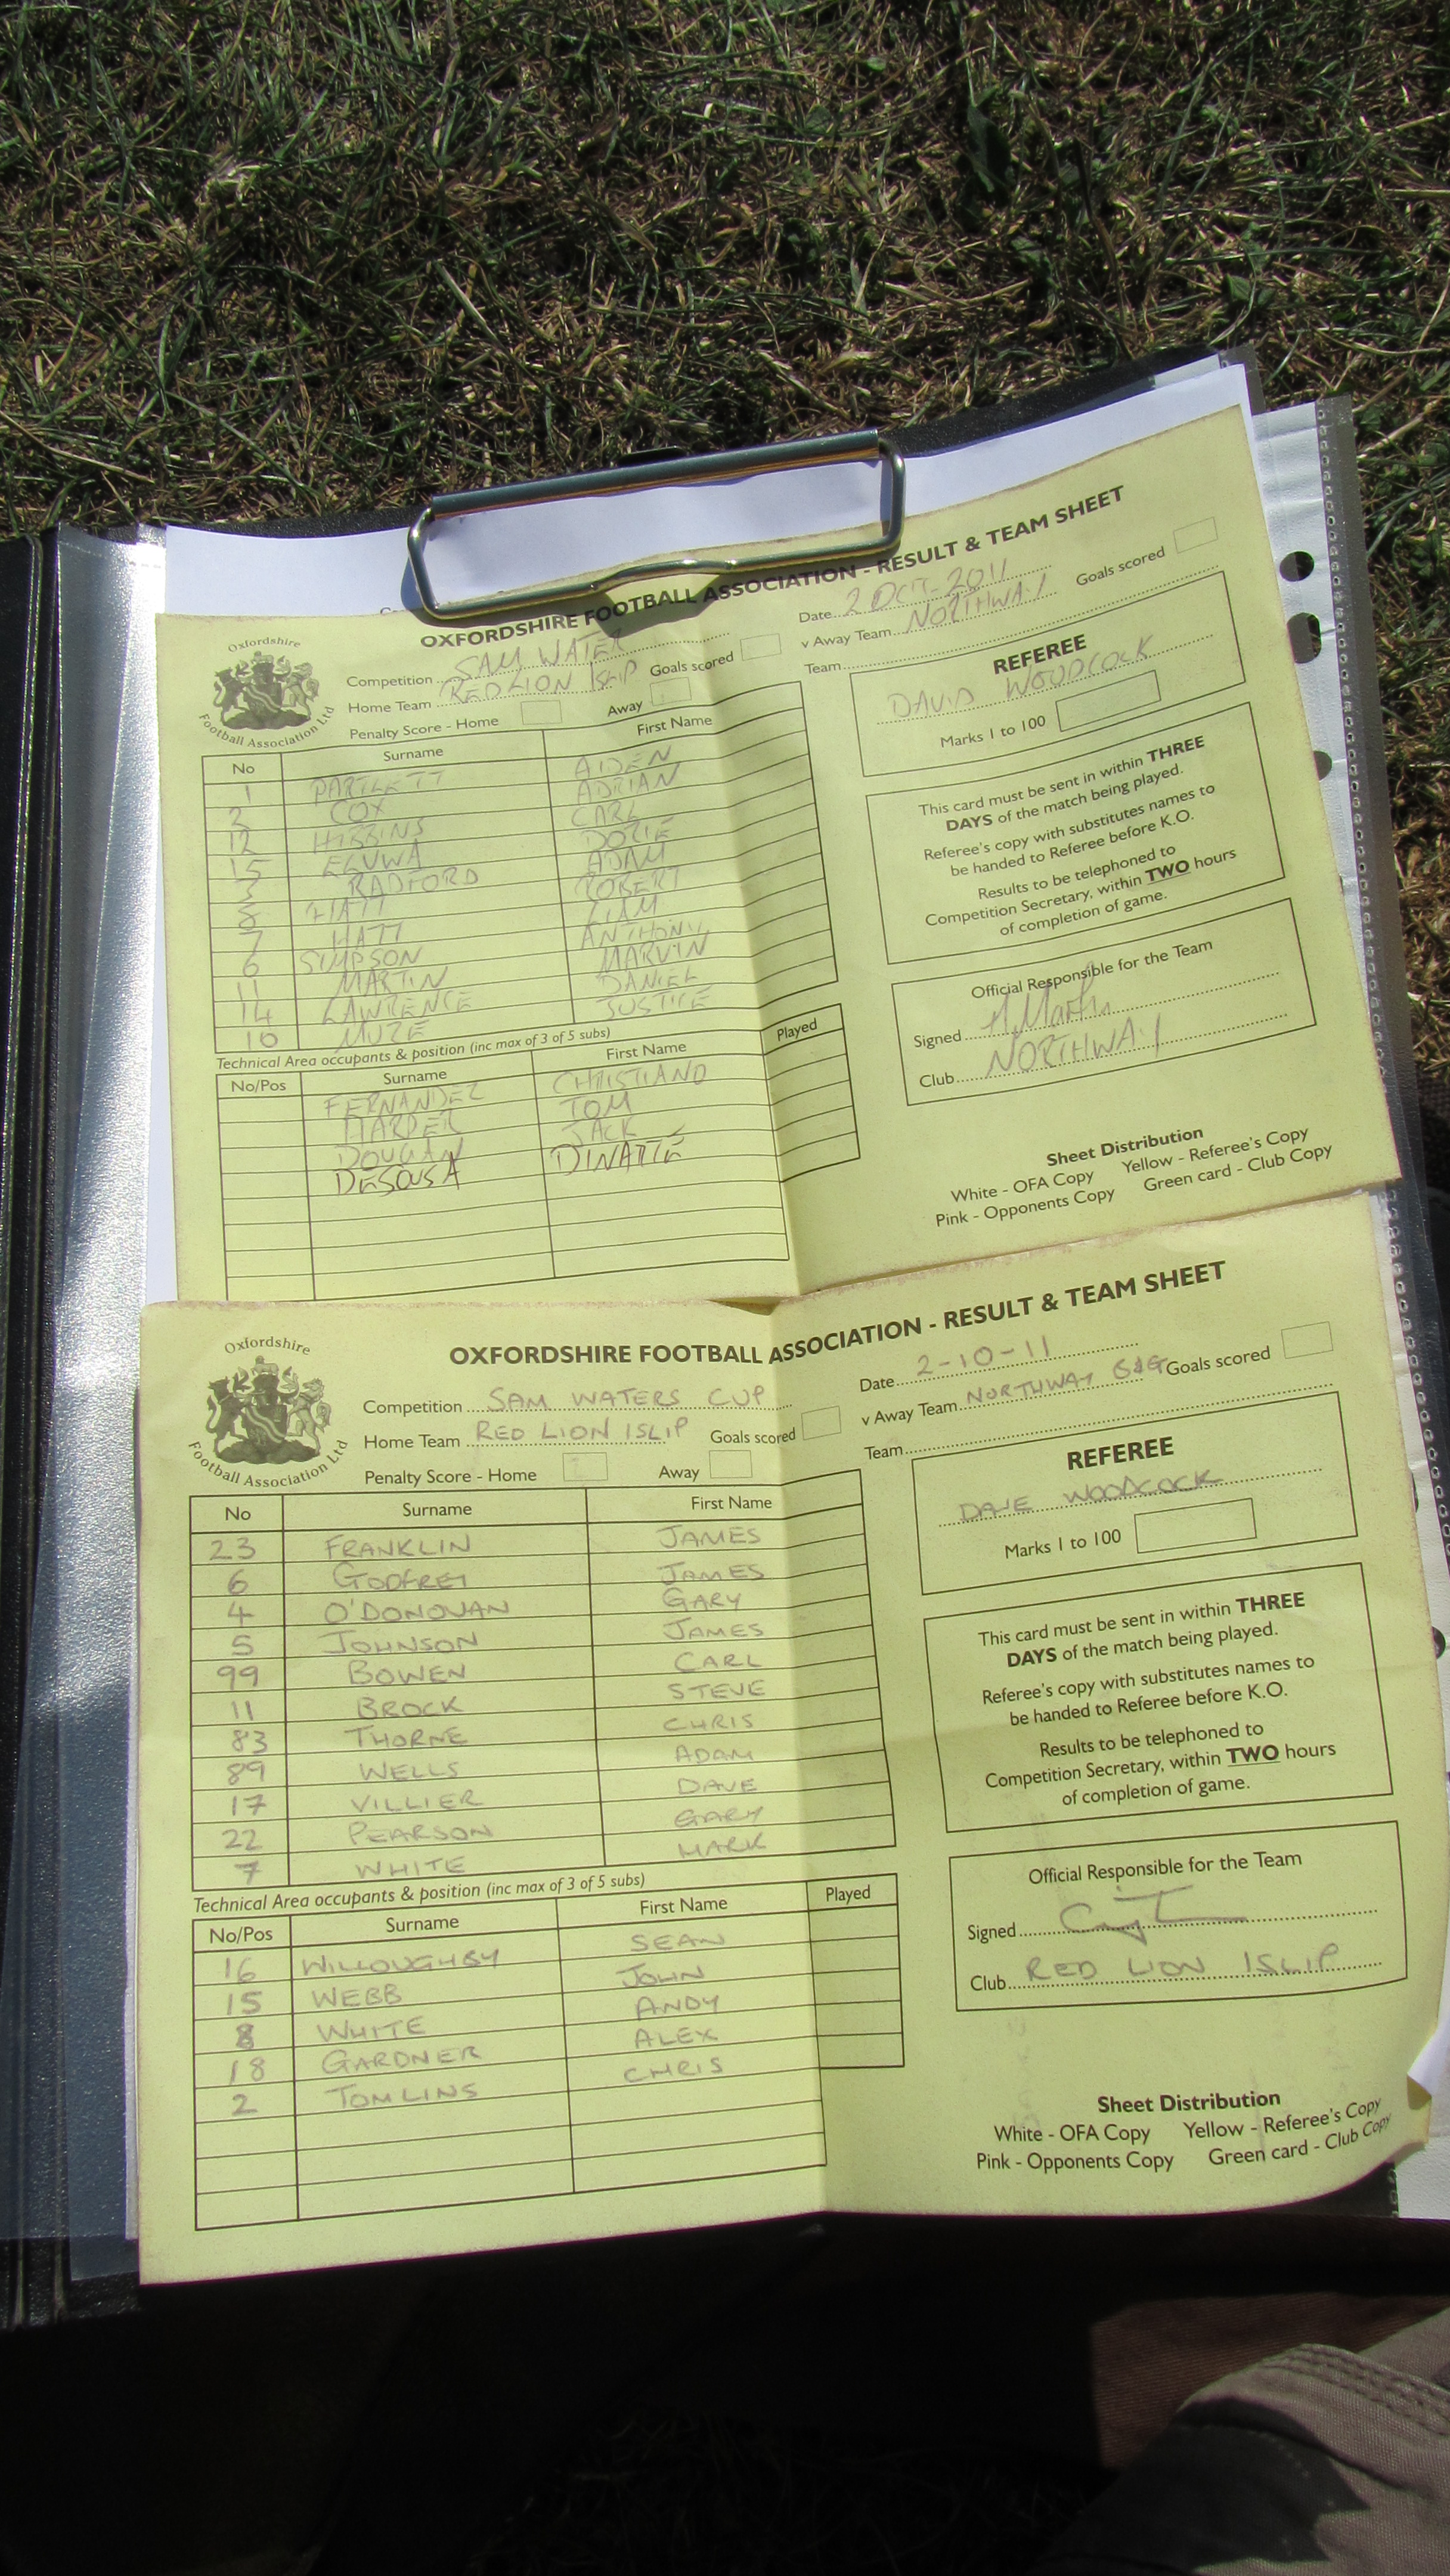 OXFORDSHIRE FOOTBALL ASSOCIATION - RESULT & TEAM SHEET
Oxfordshire
Football Association Ltd
Competition SAM WATER
Date 2 OCT-2011
Home Team RED LION ISLIP Goals scored
v Away Team NORTHWAY Goals scored
Penalty Score - Home Away
Team
No Surname First Name
1 PARTLETT AIDEN
2 COX ADRIAN
12 HIBBINS CARL
15 EGUWA
3 RADFORD ADAM
8 HIATT ROBERT
7 HATT LIAM
6 SIMPSON ANTHONY
11 MARTIN MARVIN
14 LAWRENCE DANIEL
10 MUZE JUSTICE
Technical Area occupants & position (inc max of 3 of 5 subs)
No/Pos Surname First Name Played
FERNANDEZ CHRISTIANO
HARPER TOM
DOUGAN JACK
DESOUSA DINARTE
REFEREE
DAVID WOODCOCK
Marks 1 to 100
This card must be sent in within THREE
DAYS of the match being played.
Referee's copy with substitutes names to
be handed to Referee before K.O.
Results to be telephoned to
Competition Secretary, within TWO hours
of completion of game.
Official Responsible for the Team
Signed A Martin
Club NORTHWAY
Sheet Distribution
White - OFA Copy Yellow - Referee's Copy
Pink - Opponents Copy Green card - Club Copy
OXFORDSHIRE FOOTBALL ASSOCIATION - RESULT & TEAM SHEET
Oxfordshire
Football Association Ltd
Competition SAM WATERS CUP
Date 2-10-11
Home Team RED LION ISLIP Goals scored
v Away Team NORTHWAY G&G Goals scored
Penalty Score - Home Away
Team
No Surname First Name
23 FRANKLIN JAMES
6 GODFREY JAMES
4 O'DONOVAN GARY
5 JOHNSON JAMES
99 BOWEN CARL
11 BROCK STEVE
83 THORNE CHRIS
89 WELLS ADAM
17 VILLIER DAVE
22 PEARSON GARY
7 WHITE MARK
Technical Area occupants & position (inc max of 3 of 5 subs)
No/Pos Surname First Name Played
16 WILLOUGHBY SEAN
15 WEBB JOHN
8 WHITE ANDY
18 GARDNER ALEX
2 TOMLINS CHRIS
REFEREE
DAVE WOODCOCK
Marks 1 to 100
This card must be sent in within THREE
DAYS of the match being played.
Referee's copy with substitutes names to
be handed to Referee before K.O.
Results to be telephoned to
Competition Secretary, within TWO hours
of completion of game.
Official Responsible for the Team
Signed
Club RED LION ISLIP
Sheet Distribution
White - OFA Copy Yellow - Referee's Copy
Pink - Opponents Copy Green card - Club Copy